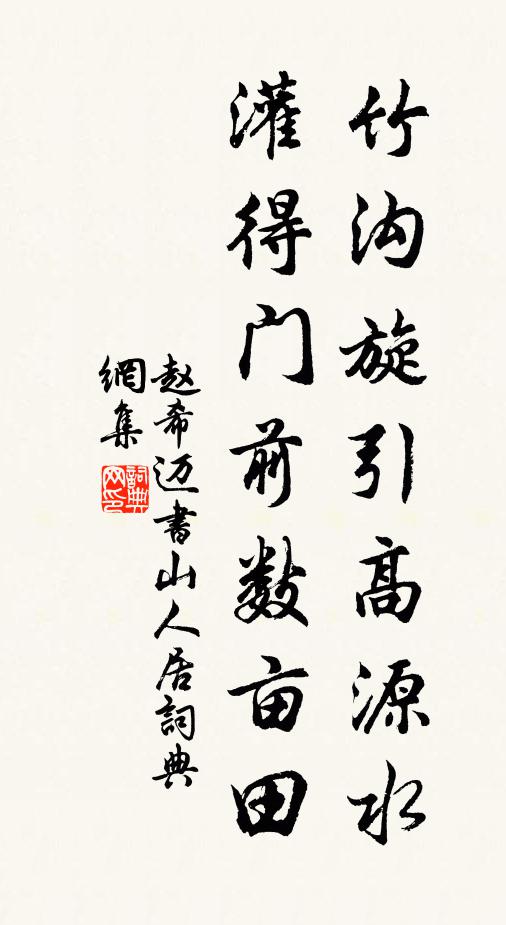 竹沟旋引高源水
灌得门前数亩田
赵希迈书山人居詞典
網集
詞典
网印